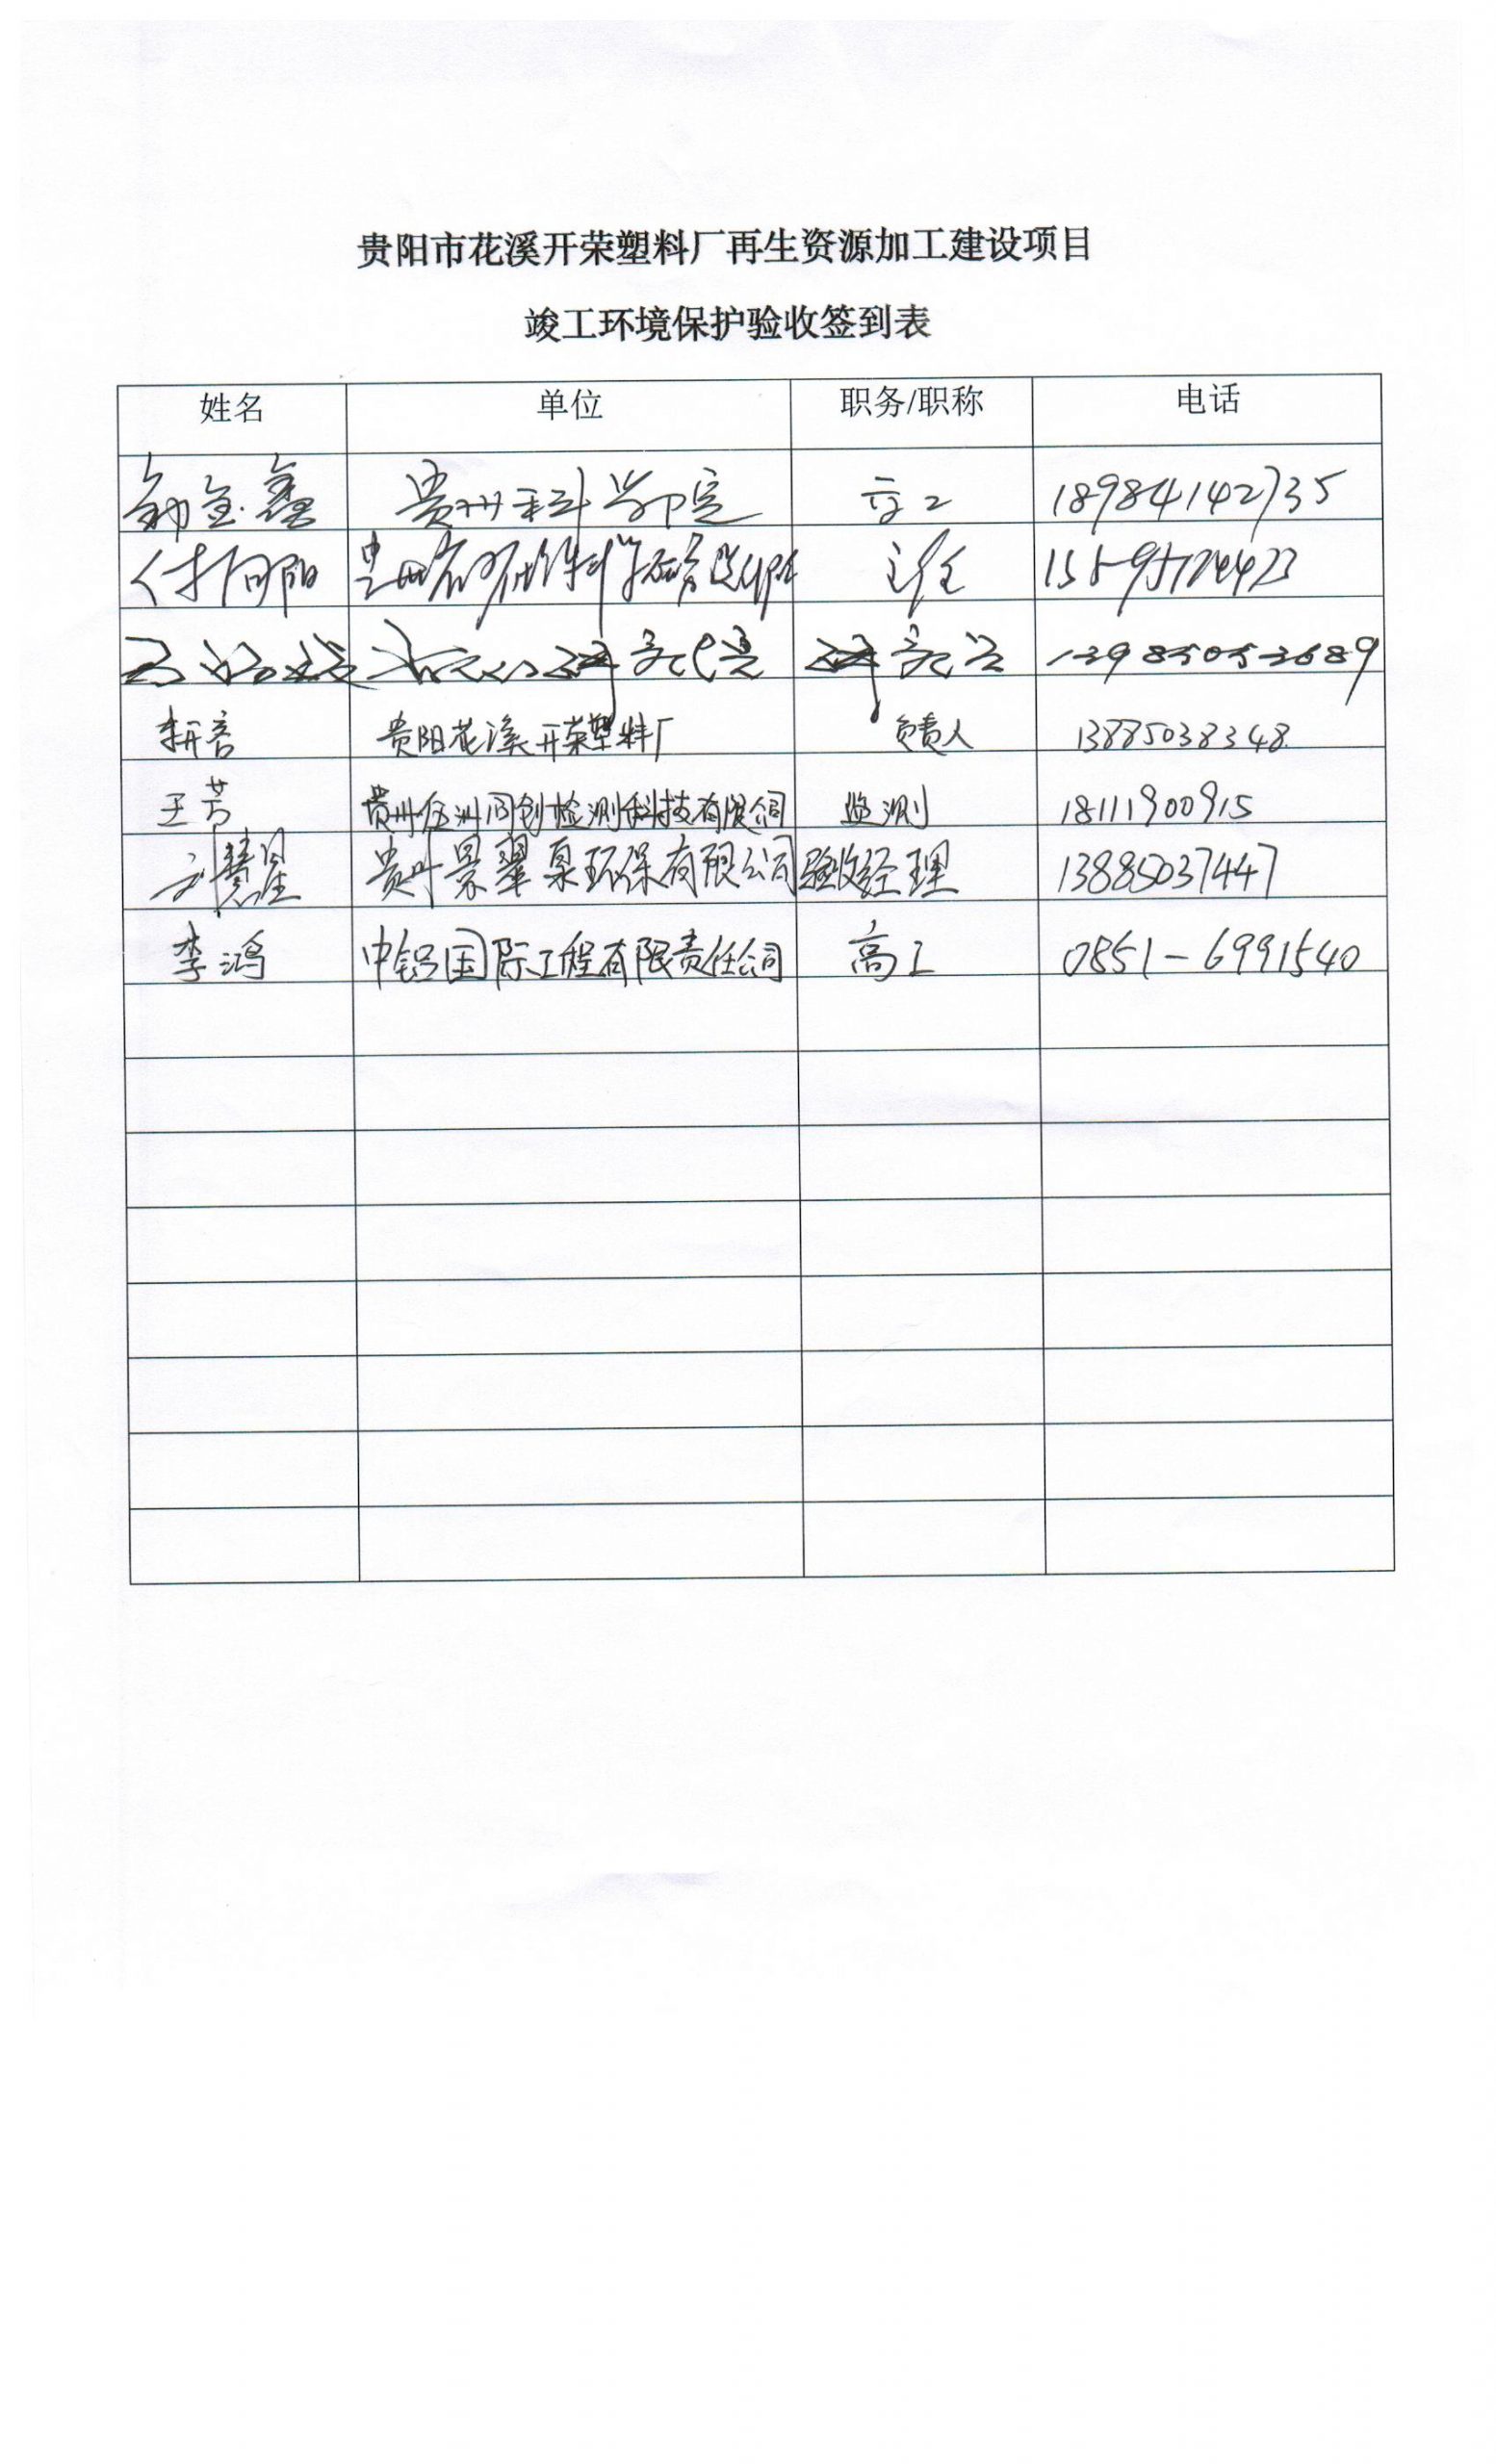 贵阳市花溪开荣塑料厂再生资源加工建设项目
竣工环境保护验收签到表
姓名 单位 职务/职称 电话
贵州科学院 高工 18984142735
付向阳 主任
13985053689
贵阳花溪开荣塑料厂 负责人 13885038348
王芳 贵州伍洲同创检测科技有限公司 监测 18111900915
刘慧星 贵州景翠泉环保有限公司 验收经理 13885037447
李鸿 中铝国际工程有限责任公司 高工 0851-6991540